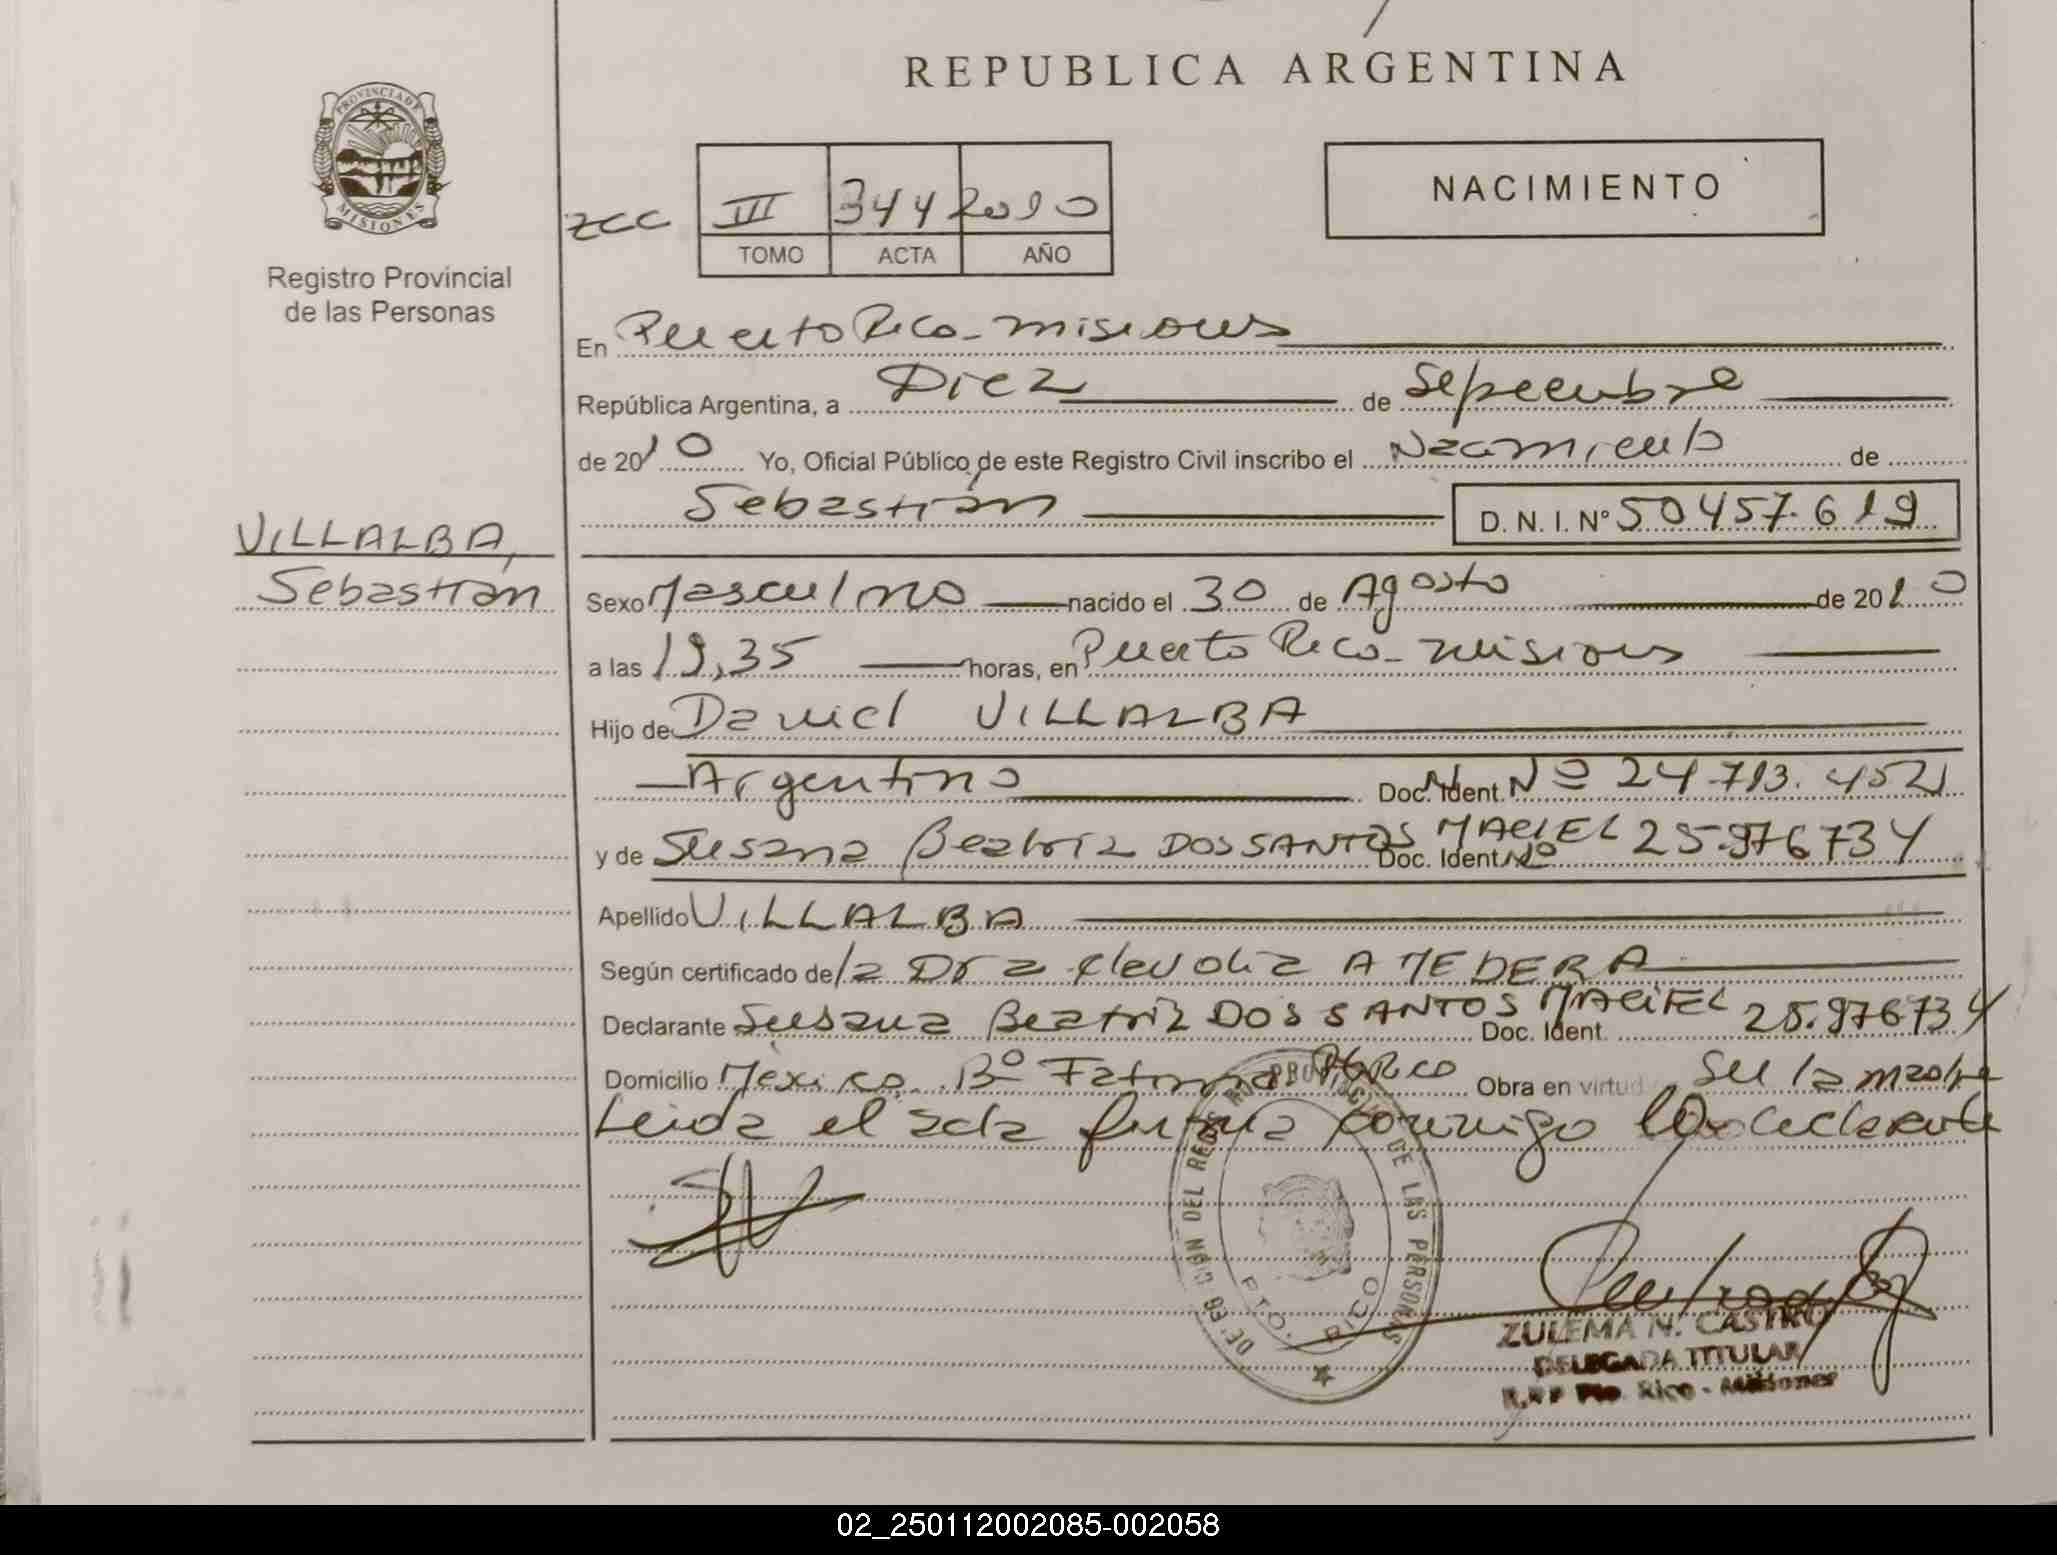 REPUBLICA ARGENTINA
PROVINCIA DE MISIONES
Registro Provincial
de las Personas
zcc III 344 2010
TOMO ACTA AÑO
NACIMIENTO
En Puerto Rico - misiones
República Argentina, a Diez de Septiembre
de 2010 Yo, Oficial Público de este Registro Civil inscribo el Nacimiento de
Sebastián D. N. I. Nº 50457.619
VILLALBA,
Sebastián
Sexo Masculino nacido el 30 de Agosto de 2010
a las 19,35 horas, en Puerto Rico - misiones
Hijo de Daniel VILLALBA
Argentino Doc. Ident. Nº 24.713.452
y de Susana Beatriz DOS SANTOS MACIEL Doc. Ident. Nº 25.976734
Apellido VILLALBA
Según certificado de la Dra AMEDERA
Declarante Susana Beatriz DOS SANTOS MACIEL Doc. Ident. 25.976734
Domicilio México. Bº Fatima. Pto Rico Obra en virtud su la madre
Leida el acta firma conmigo la declarante
DEL REG. PROVINCIAL DE LAS PERSONAS
PTO. RICO
ZULEMA N. CASTRO
DELEGADA TITULAR
R.P.P Pto. Rico - Misiones
02_250112002085-002058